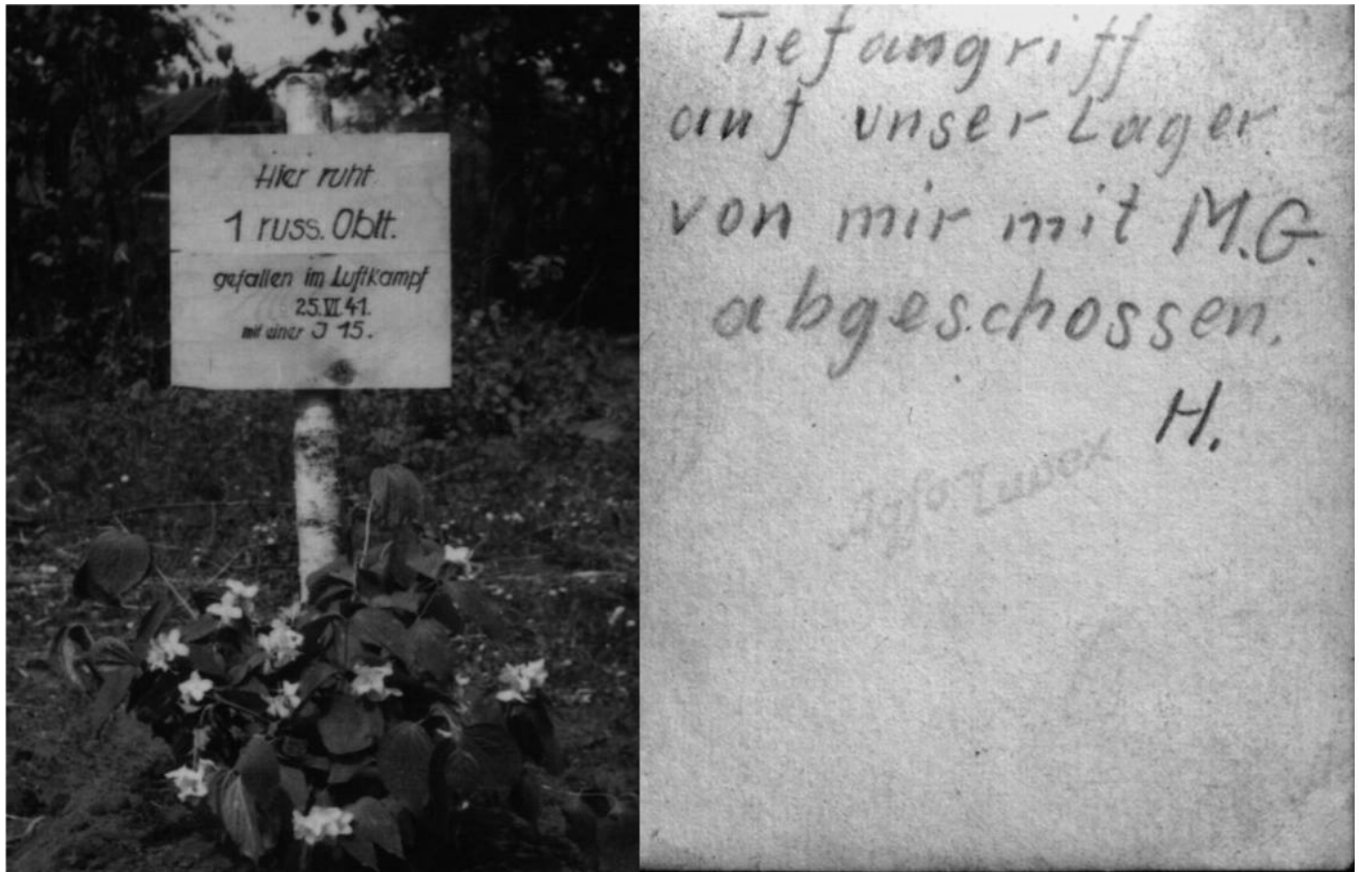 Hier ruht
1 russ. Oblt.
gefallen im Luftkampf
25.VI.41.
mit einer J 15.
Tiefangriff
auf unser Lager
von mir mit M.G.
abgeschossen.
H.
Agfa Lupex